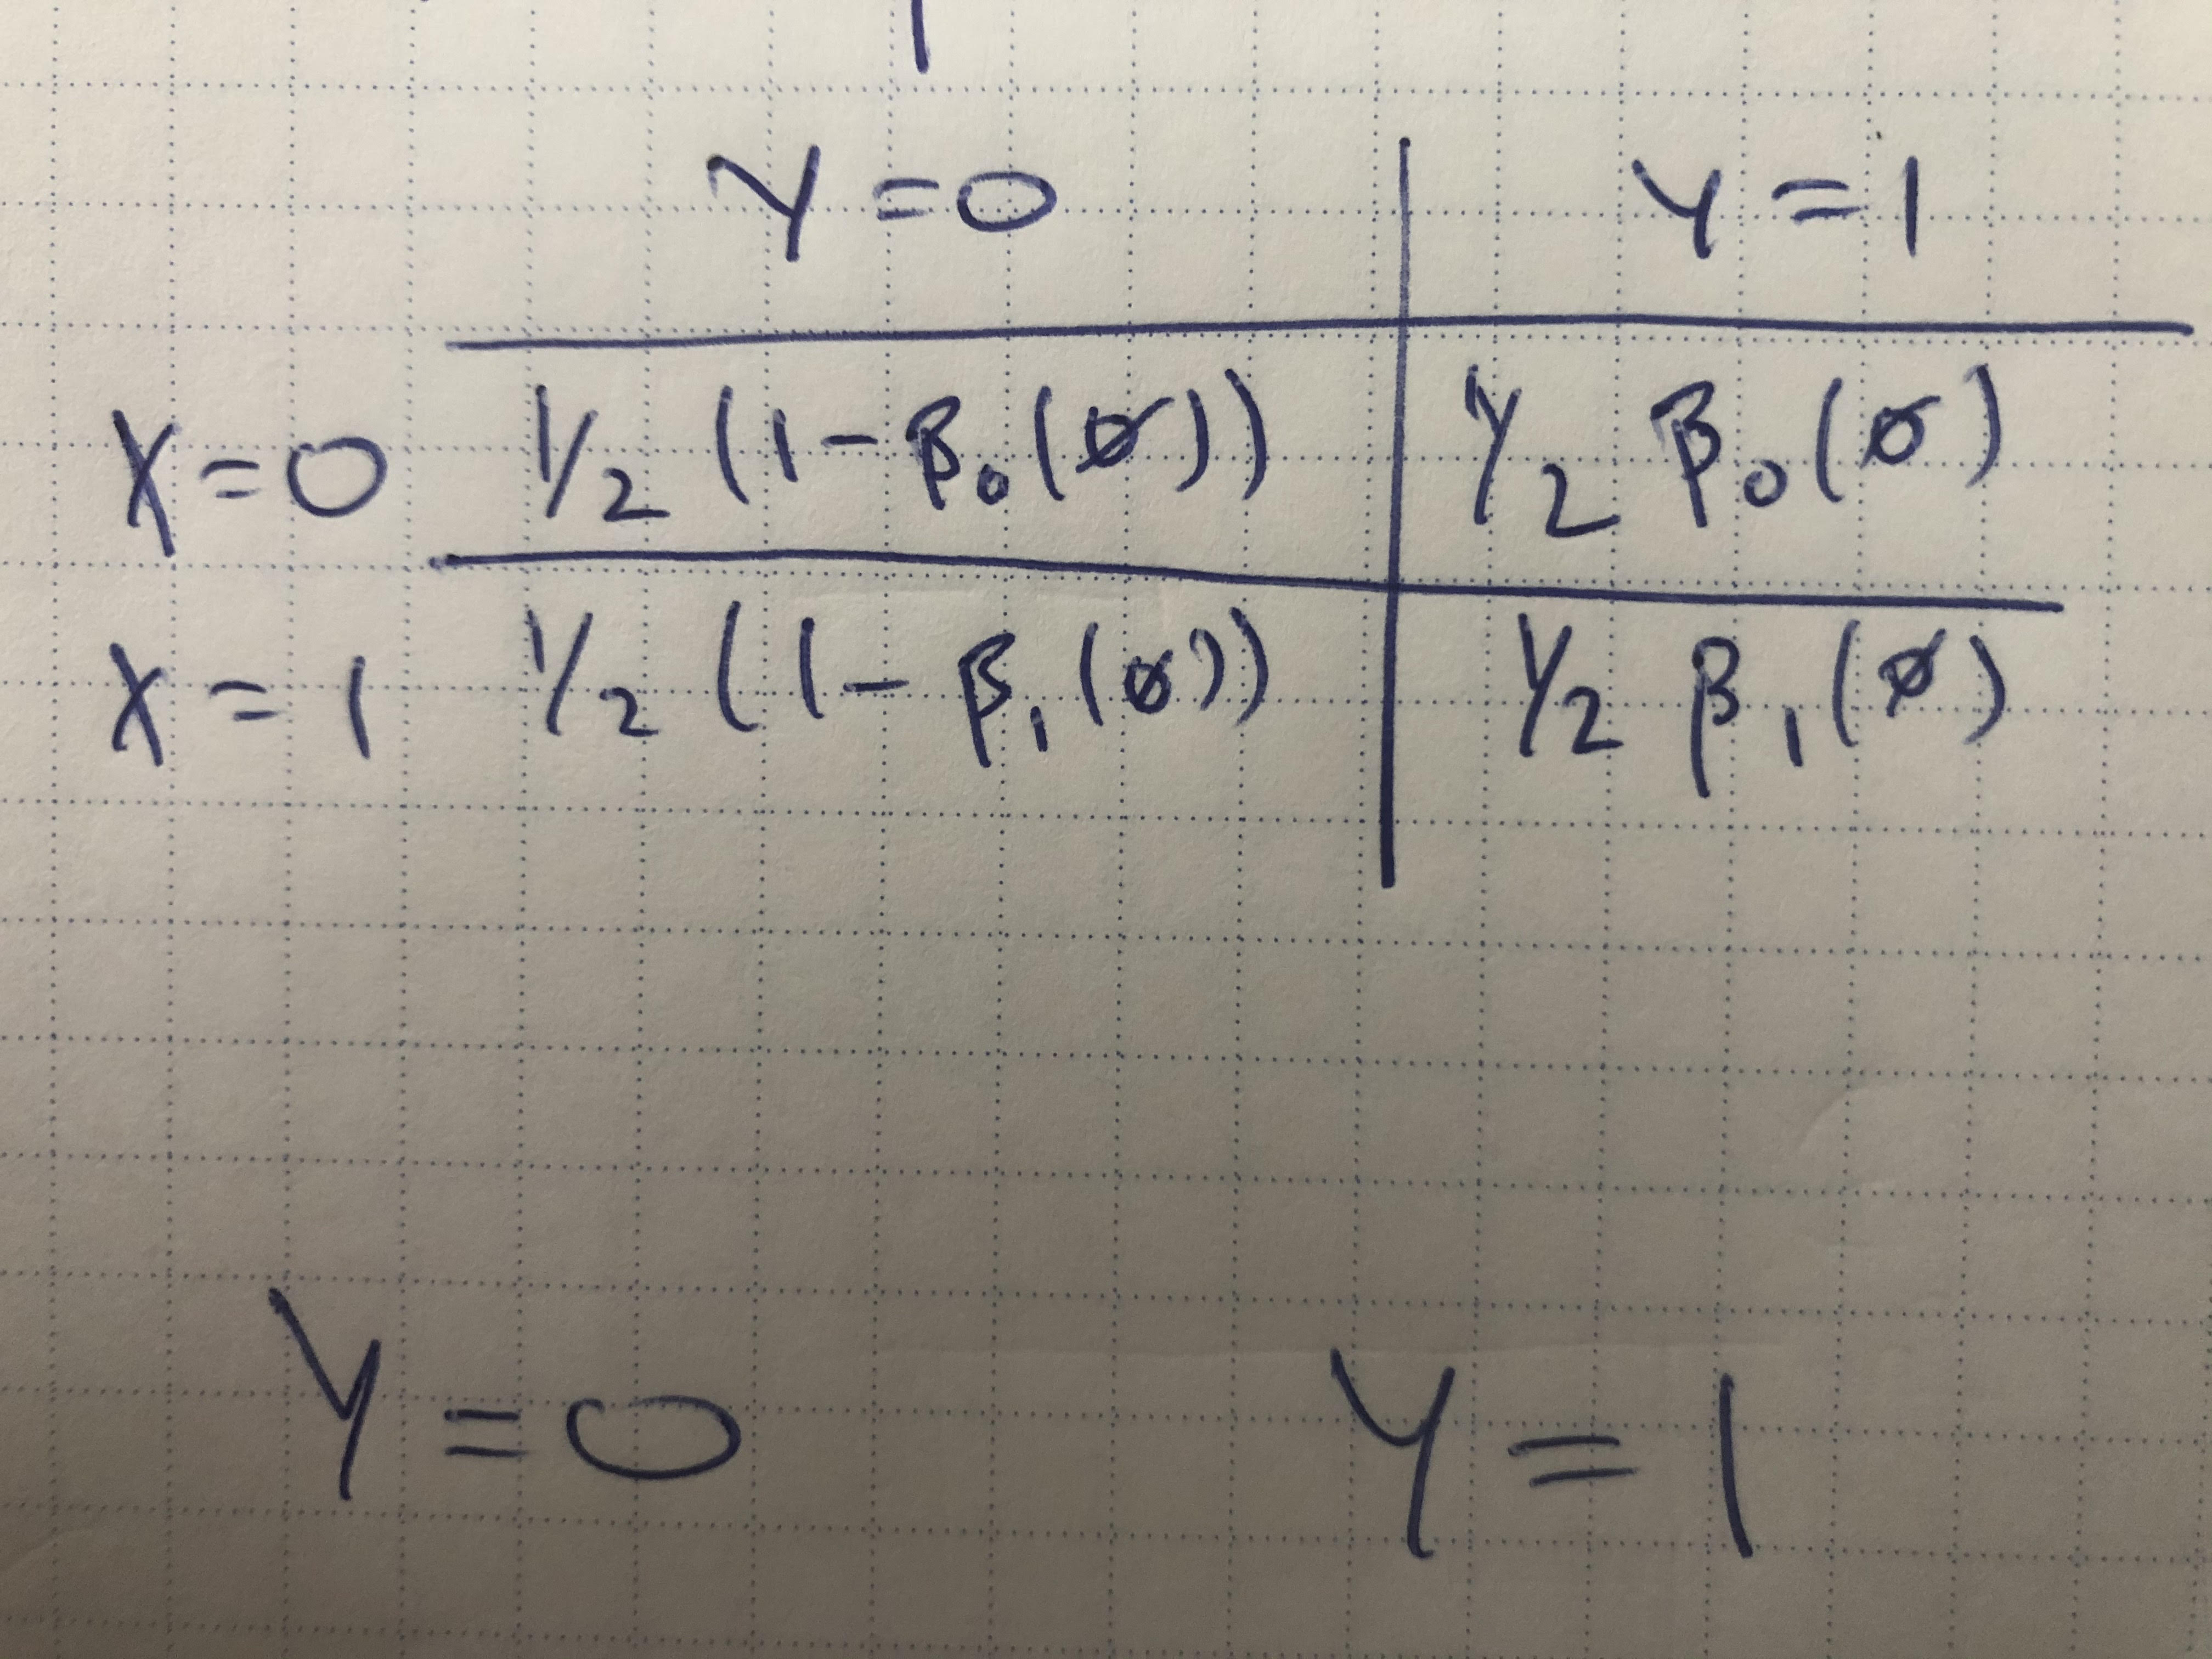 Y=0 Y=1
X=0 1/2 (1-β₀(ø)) 1/2 β₀(ø)
X=1 1/2 (1-β₁(ø)) 1/2 β₁(ø)
Y=0 Y=1